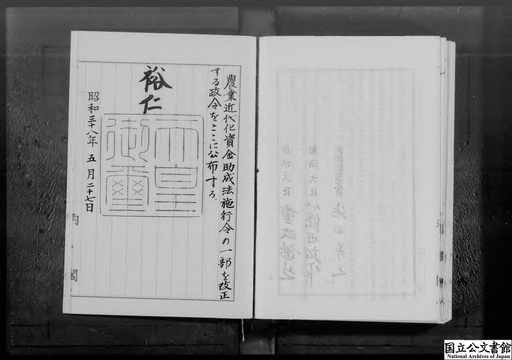 農業近代化資金助成法施行令の一部を改正
する政令をここに公布する。
裕仁
天皇
御璽
昭和三十八年五月二十七日
内閣
国立公文書館
National Archives of Japan